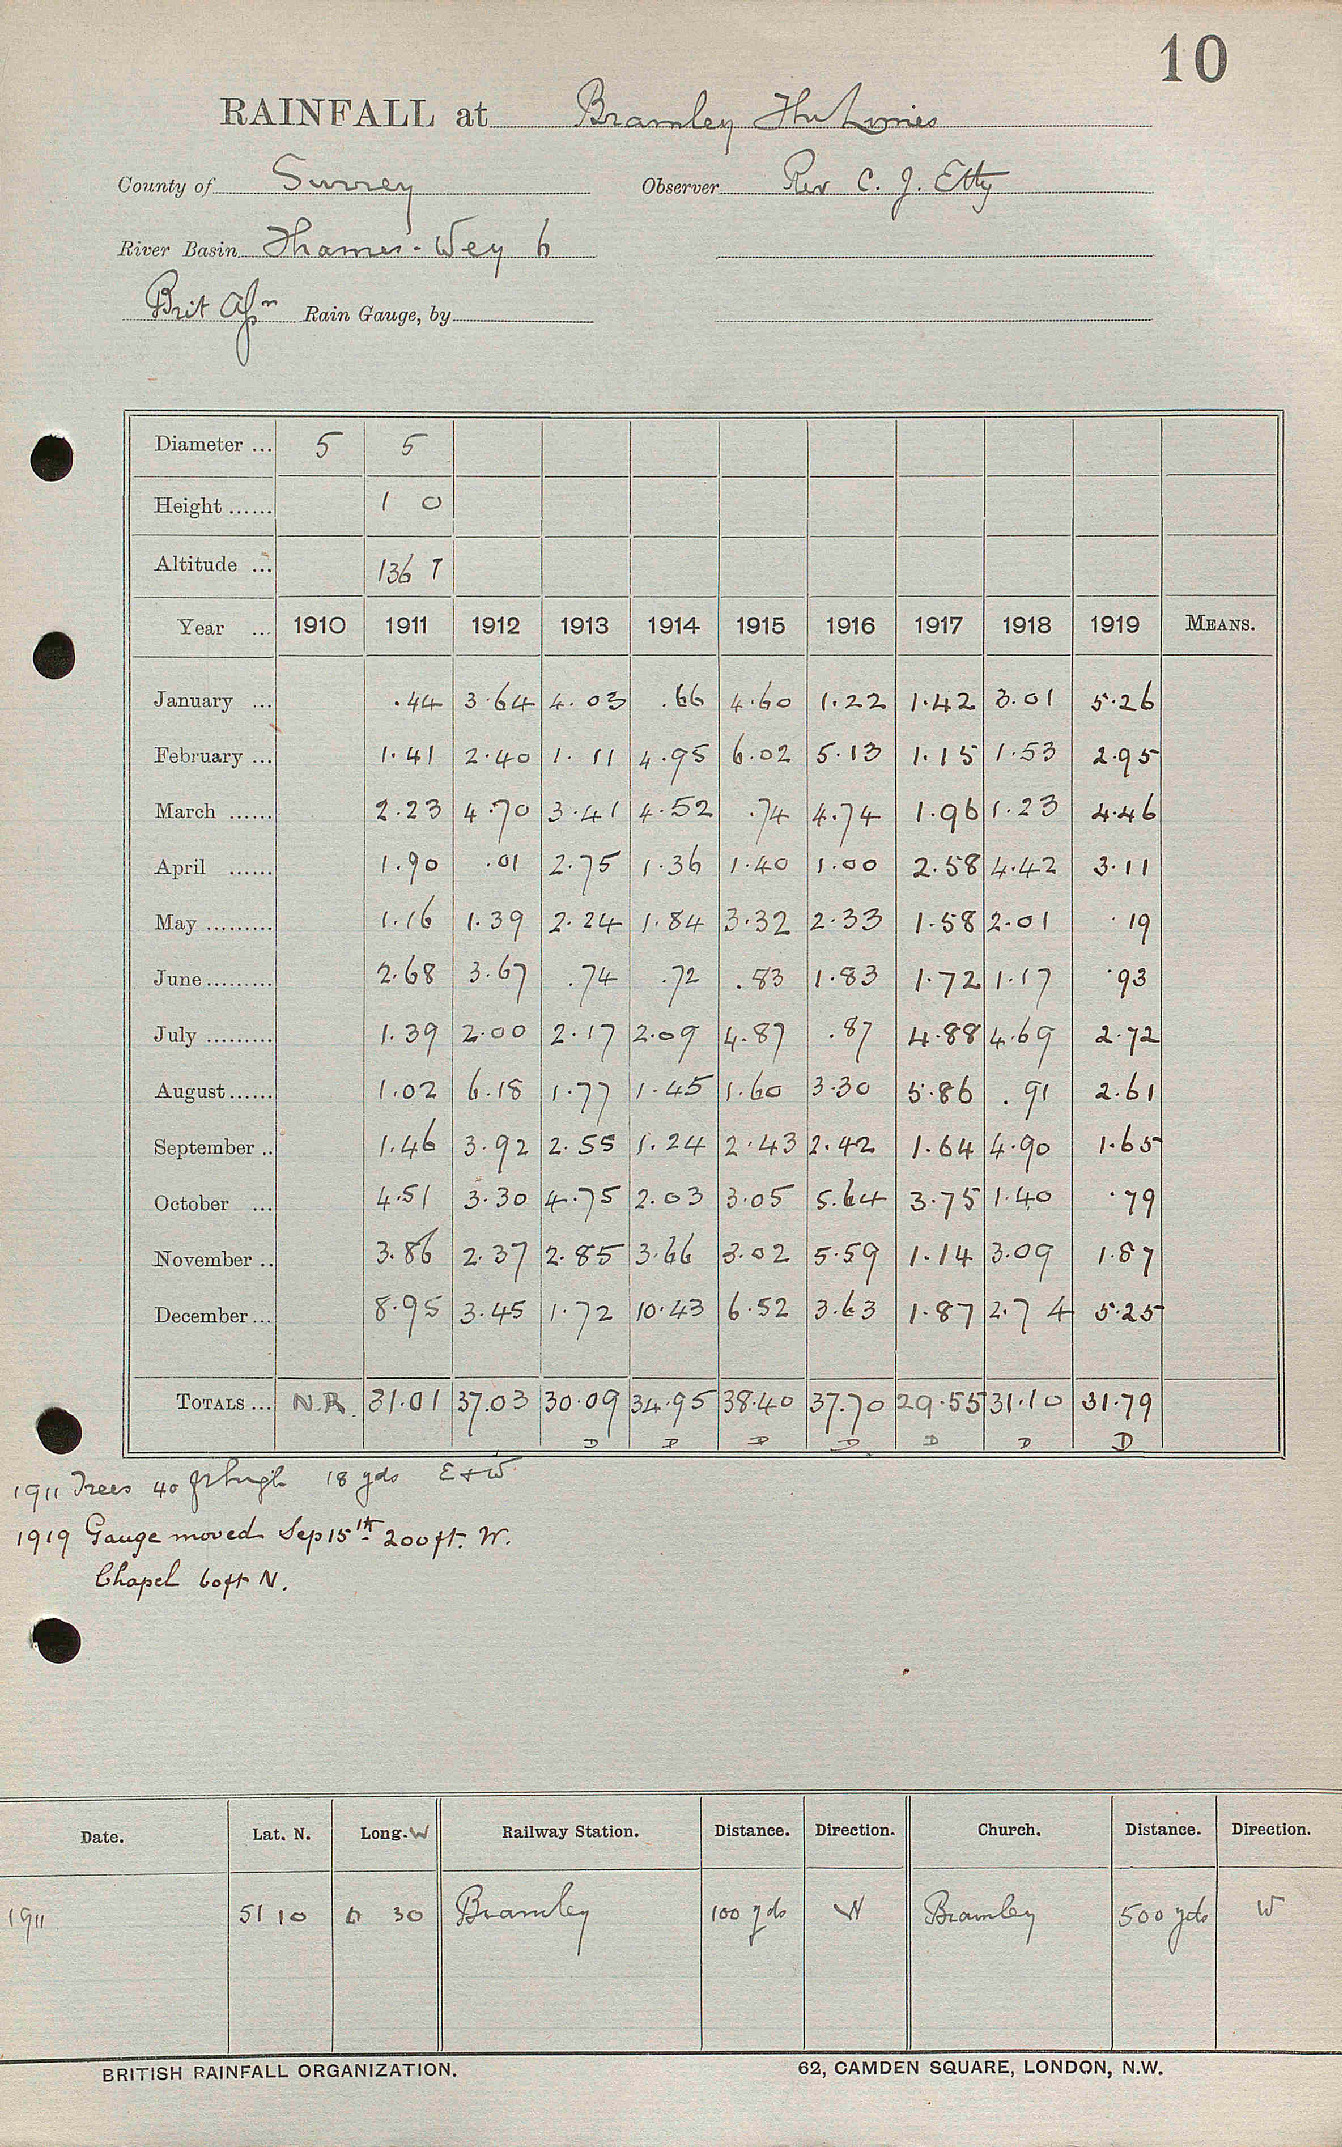 10
RAINFALL at Bramley The Limes
County of Surrey Observer Rev C. J. Etty
River Basin Thames - Wey 6
Brit Assn Rain Gauge, by
Diameter ... 5 5
Height ...... 1 0
Altitude ... 136 T
Year ... 1910 1911 1912 1913 1914 1915 1916 1917 1918 1919 MEANS.
January ... .44 3.64 4.03 .66 4.60 1.22 1.42 3.01 5.26
February ... 1.41 2.40 1.11 4.95 6.02 5.13 1.15 1.53 2.95
March ...... 2.23 4.70 3.41 4.52 .74 4.74 1.96 1.23 4.46
April ...... 1.90 .01 2.75 1.36 1.40 1.00 2.58 4.42 3.11
May ......... 1.16 1.39 2.24 1.84 3.32 2.33 1.58 2.01 .19
June ......... 2.68 3.67 .74 .72 .83 1.83 1.72 1.17 .93
July ......... 1.39 2.00 2.17 2.09 4.87 .87 4.88 4.69 2.72
August ...... 1.02 6.18 1.77 1.45 1.60 3.30 5.86 .91 2.61
September .. 1.46 3.92 2.55 1.24 2.43 2.42 1.64 4.90 1.65
October ... 4.51 3.30 4.75 2.03 3.05 5.64 3.75 1.40 .79
November .. 3.86 2.37 2.85 3.66 3.02 5.59 1.14 3.09 1.87
December ... 8.95 3.45 1.72 10.43 6.52 3.63 1.87 2.74 5.25
TOTALS ... N.R. 31.01 37.03 30.09 34.95 38.40 37.70 29.55 31.10 31.79
D D D D D D D
1911 Trees 40 ft high 18 yds E + W
1919 Gauge moved Sep 15th 200 ft. W.
Chapel 60ft N.
Date. Lat. N. Long. W Railway Station. Distance. Direction. Church. Distance. Direction.
1911 51 10 0 30 Bramley 100 yds W Bramley 500 yds W
BRITISH RAINFALL ORGANIZATION. 62, CAMDEN SQUARE, LONDON, N.W.